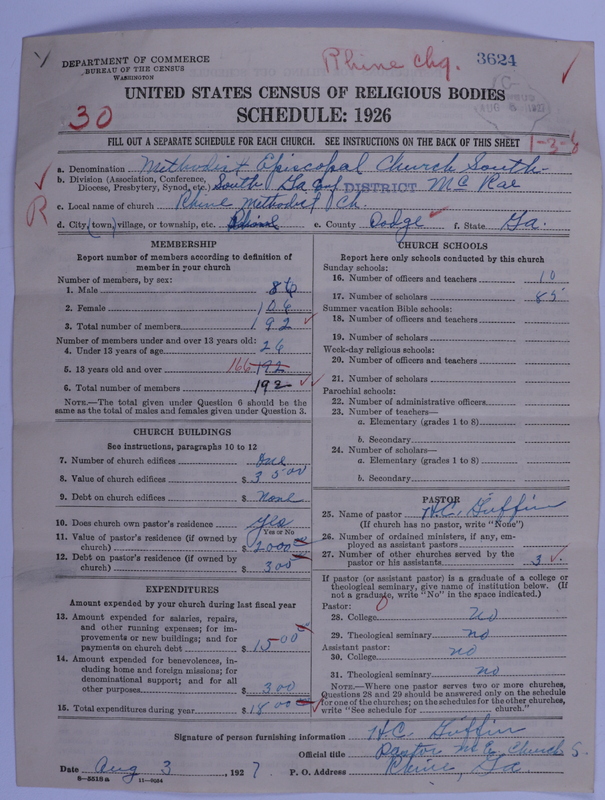 DEPARTMENT OF COMMERCE
BUREAU OF THE CENSUS
WASHINGTON
Rhine chg.
3624
AUG 6 1927
UNITED STATES CENSUS OF RELIGIOUS BODIES
30
SCHEDULE: 1926
FILL OUT A SEPARATE SCHEDULE FOR EACH CHURCH. SEE INSTRUCTIONS ON THE BACK OF THIS SHEET
1-3-6
a. Denomination Methodist Episcopal Church South
b. Division (Association, Conference, Diocese, Presbytery, Synod, etc.) South Ga Conf DISTRICT Mc Rae
R
c. Local name of church Rhine Methodist Ch.
d. City, town, village, or township, etc. Rhine e. County Dodge f. State Ga.
MEMBERSHIP
Report number of members according to definition of
member in your church
Number of members, by sex:
1. Male 86
2. Female 106
3. Total number of members 192
Number of members under and over 13 years old:
4. Under 13 years of age 26
5. 13 years old and over 166 192
6. Total number of members 192
NOTE.—The total given under Question 6 should be
same as the total of males and females given under Question 3.
CHURCH BUILDINGS
See instructions, paragraphs 10 to 12
7. Number of church edifices One
8. Value of church edifices $ 3500
9. Debt on church edifices $ None
10. Does church own pastor's residence Yes
Yes or No
11. Value of pastor's residence (if owned by
church) $ 2000
12. Debt on pastor's residence (if owned by
church) $ 300
EXPENDITURES
Amount expended by your church during last fiscal year
13. Amount expended for salaries, repairs,
and other running expenses; for im-
provements or new buildings; and for
payments on church debt $ 1500
14. Amount expended for benevolences, in-
cluding home and foreign missions; for
denominational support; and for all
other purposes $ 300
15. Total expenditures during year $ 1800
CHURCH SCHOOLS
Report here only schools conducted by this church
Sunday schools:
16. Number of officers and teachers 10
17. Number of scholars 85
Summer vacation Bible schools:
18. Number of officers and teachers
19. Number of scholars
Week-day religious schools:
20. Number of officers and teachers
21. Number of scholars
Parochial schools:
22. Number of administrative officers
23. Number of teachers—
a. Elementary (grades 1 to 8)
b. Secondary
24. Number of scholars—
a. Elementary (grades 1 to 8)
b. Secondary
PASTOR
25. Name of pastor H.C. Griffin
(If church has no pastor, write "None")
26. Number of ordained ministers, if any, em-
ployed as assistant pastors
27. Number of other churches served by the
pastor or his assistants 3
If pastor (or assistant pastor) is a graduate of a college or
theological seminary, give name of institution below. (If
not a graduate, write "No" in the space indicated.)
Pastor: 0
28. College No
29. Theological seminary no
Assistant pastor:
30. College no
31. Theological seminary no
NOTE.—Where one pastor serves two or more churches,
Questions 28 and 29 should be answered only on the schedule
for one of the churches; on the schedules for the other churches,
write "See schedule for church."
Signature of person furnishing information H.C. Griffin
Official title Pastor M.E. Church S.
Date Aug 3, 1927 P. O. Address Rhine, Ga
8-5518a 11-9024